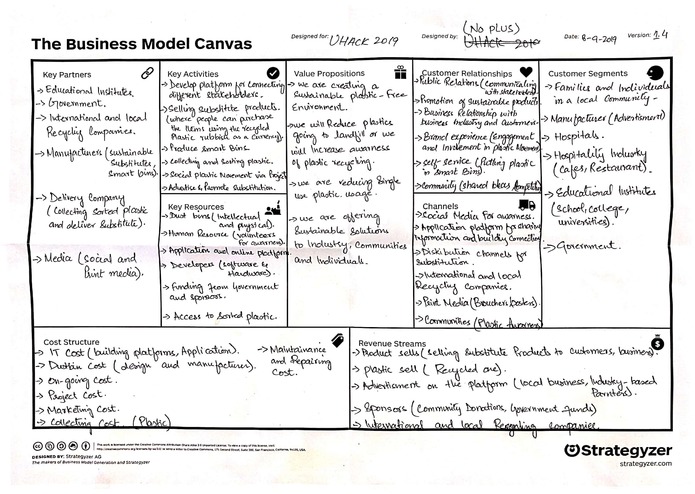 The Business Model Canvas
Designed for: UHACK 2019
Designed by: (No PLUS)
UHack 2019
Date: 8-9-2019
Version: 1.4
Key Partners
→ Educational Institutes.
→ Government.
→ International and local
Recycling Companies.
→ Manufactures (sustainable
Substitutes,
Smart bins)
→ Delivery Company
(Collecting Sorted plastic
and deliver Substitute).
→ Media (social and
Print media).
Key Activities
→ Develop platform for Connecting
different Stakeholders.
→ Selling Substitute products.
(where people can purchase
the items using the recycled
Plastic rubbish as a currency).
→ Produce Smart Bins.
→ Collecting and sorting plastic.
→ Social plastic Movement via Project
→ Advertise & Promote Substitution.
Key Resources
→ Dust bins (Intellectual
and physical).
→ Human Resource (volunteers
for awareness).
→ Application and online platform.
→ Developers (software &
Hardware).
→ Funding from Government
and sponsors.
→ Access to Sorted plastic.
Value Propositions
→ we are creating a
Sustainable plastic-Free
Environment.
→ we will Reduce plastics
going to landfill or we
will Increase awareness
of plastic recycling.
→ we are reducing Single
use plastic usage.
→ we are offering
Sustainable Solutions
to Industry, Communities
and Individuals.
Customer Relationships
→ Public Relations (Communicating
with stakeholders).
→ Promotion of sustainable products
→ Business Relationship with
business Industry and Customers.
→ Brand experience (Engagement
and Involvement in plastic Movement)
→ self-service (Putting plastic
in Smart Bins).
→ Community (shared Ideas
Channels
→ Social Media For awareness.
→ Application platform for sharing
Information and building Connection.
→ Distribution channels for
Substitution.
→ International and local
Recycling Companies.
→ Print Media (Brouchers/posters).
→ Communities (Plastic Awareness)
Customer Segments
→ Families and Individuals
in a local Community.
→ Manufactures (Advertisment)
→ Hospitals.
→ Hospitality Industry
(Cafes, Restaurant).
→ Educational Institutes
(School, college,
universities).
→ Government.
Cost Structure
→ IT Cost (building platforms, Application).
→ Dustbin Cost (design and manufacture).
→ On-going Cost.
→ Project Cost.
→ Marketing Cost.
→ Collecting Cost (Plastic)
→ Maintainance
and Repairing
Cost.
Revenue Streams
→ Product sells (selling Substitute Products to customers, business).
→ plastic sell (Recycled one).
→ Advertisment on the platform (local business, Industry-based
Partners).
→ Sponsors (Community Donations, Government funds)
→ International and local Recycling companies.
DESIGNED BY: Strategyzer AG
The makers of Business Model Generation and Strategyzer
Strategyzer
strategyzer.com